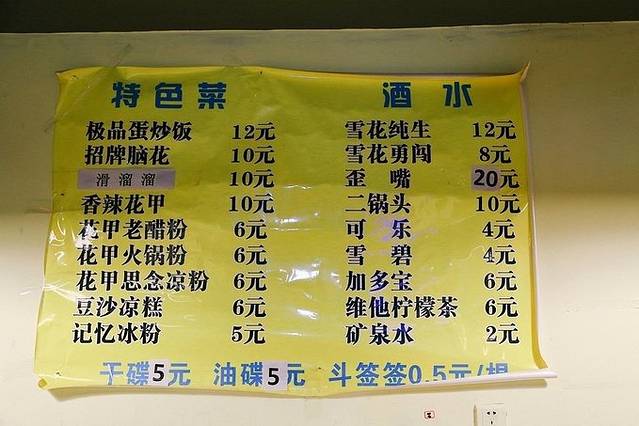 特色菜 酒水
极品蛋炒饭 12元 雪花纯生 12元
招牌脑花 10元 雪花勇闯 8元
滑溜溜 10元 歪嘴 20元
香辣花甲 10元 二锅头 10元
花甲老醋粉 6元 可乐 4元
花甲火锅粉 6元 雪碧 4元
花甲思念凉粉 6元 加多宝 6元
豆沙凉糕 6元 维他柠檬茶 6元
记忆冰粉 5元 矿泉水 2元
干碟5元 油碟5元 斗签签0.5元/根